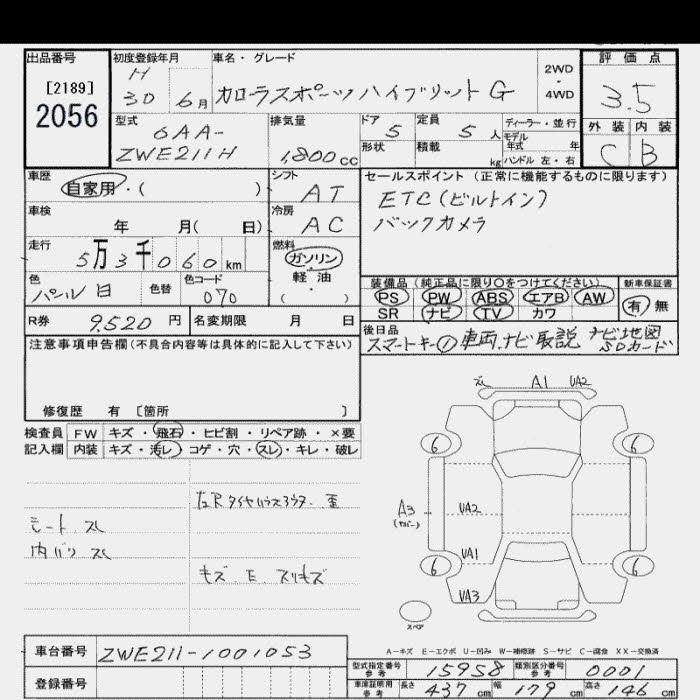 出品番号 初度登録年月 車名・グレード 2WD・4WD 評価点
[2189] H
2056 30 6月 カローラスポーツハイブリットG 3.5
型式 6AA- 排気量 ドア 5 定員 5人 ディーラー・並行 外装 内装
ZWE211H 1,800cc 形状 積載 kg モデル年式 年 C B
ハンドル 左・右
車歴 自家用・( ) シフト AT セールスポイント(正常に機能するものに限ります)
車検 年 月( 日) 冷房 AC ETC(ビルトイン)
バックカメラ
走行 5万3千060km 燃料 ガソリン・軽油・( )
色 パール白 色替 色コード 070 装備品(純正品に限り○をつけてください) 新車保証書
PS PW ABS エアB AW 有 無
SR ナビ TV カワ
R券 9,520円 名変期限 月 日 後日品
スマートキー① 車両、ナビ取説 ナビ地図SDカード
注意事項申告欄(不具合内容等は具体的に記入して下さい)
修復歴 有 [箇所 ]
検査員 FW キズ・飛石・ヒビ割・リペア跡・×要
記入欄 内装 キズ・汚レ・コゲ・穴・スレ・キレ・破レ
A1 UA2
6 6
左Rタイヤハウスアウター 歪
A3 UA2
シート スレ
内バリ スレ UA1
キズ E スリキズ 6 6
UA3
スペア
A-キズ E-エクボ U-凹み W-補修跡 S-サビ C-腐食 XX-交換済
車台番号 ZWE211-1001053
型式指定番号 参考 15958 類別区分番号 参考 0001
登録番号 車庫証明用 参考 長さ 437cm 幅 179cm 高さ 146cm